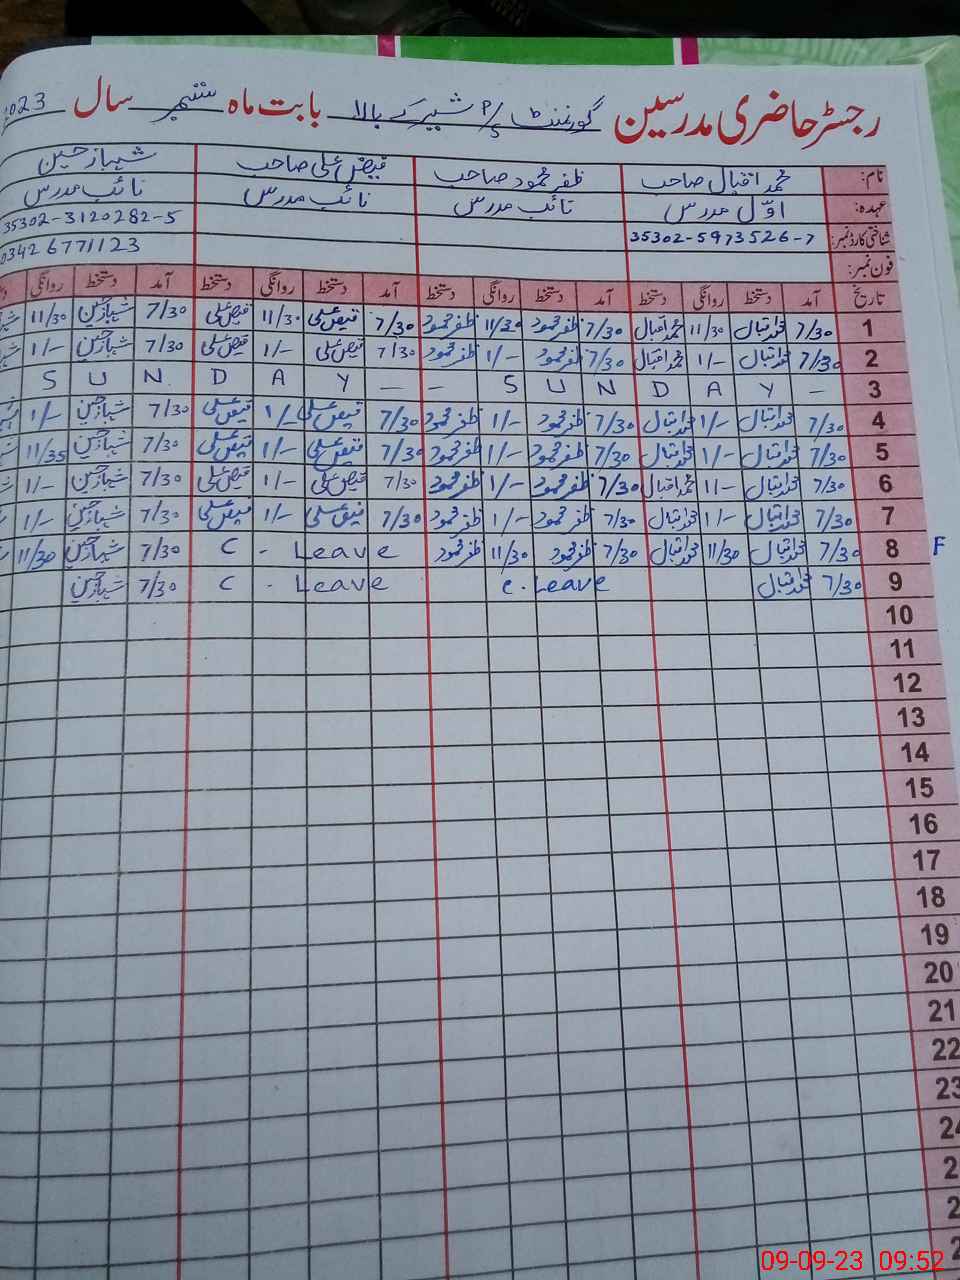 رجسٹر حاضری مدرسین گورنمنٹ P/S شیر کے بالا بابت ماہ ستمبر سال 2023
نام: محمد اقبال صاحب ظفر محمود صاحب فیض علی صاحب شہباز حسین
عہدہ: اوّل مدرس نائب مدرس نائب مدرس نائب مدرس
شناختی کارڈ نمبر: 35302-5973526-7 35302-3120282-5
فون نمبر: 03426771123
تاریخ آمد دستخط روانگی دستخط آمد دستخط روانگی دستخط آمد دستخط روانگی دستخط آمد دستخط روانگی
1 7/30 محمد اقبال 11/30 محمد اقبال 7/30 ظفر محمود 11/30 ظفر محمود 7/30 فیض علی 11/30 فیض علی 7/30 شہباز حسین 11/30
2 7/30 محمد اقبال 1/- محمد اقبال 7/30 ظفر محمود 1/- ظفر محمود 7/30 فیض علی 1/- فیض علی 7/30 شہباز حسین 1/-
S U N D A Y - - S U N D A Y - 3
4 7/30 محمد اقبال 1/- محمد اقبال 7/30 ظفر محمود 1/- ظفر محمود 7/30 فیض علی 1/- فیض علی 7/30 شہباز حسین 1/-
5 7/30 محمد اقبال 1/- محمد اقبال 7/30 ظفر محمود 1/- ظفر محمود 7/30 فیض علی 1/- فیض علی 7/30 شہباز حسین 11/35
6 7/30 محمد اقبال 1/- محمد اقبال 7/30 ظفر محمود 1/- ظفر محمود 7/30 فیض علی 1/- فیض علی 7/30 شہباز حسین 1/-
7 7/30 محمد اقبال 1/- محمد اقبال 7/30 ظفر محمود 1/- ظفر محمود 7/30 فیض علی 1/- فیض علی 7/30 شہباز حسین 1/-
F 8 7/30 محمد اقبال 11/30 محمد اقبال 7/30 ظفر محمود 11/30 ظفر محمود C - Leave 7/30 شہباز حسین 11/30
9 7/30 محمد اقبال C. Leave C - Leave 7/30 شہباز حسین
10
11
12
13
14
15
16
17
18
19
20
21
22
23
24
09-09-23 09:52